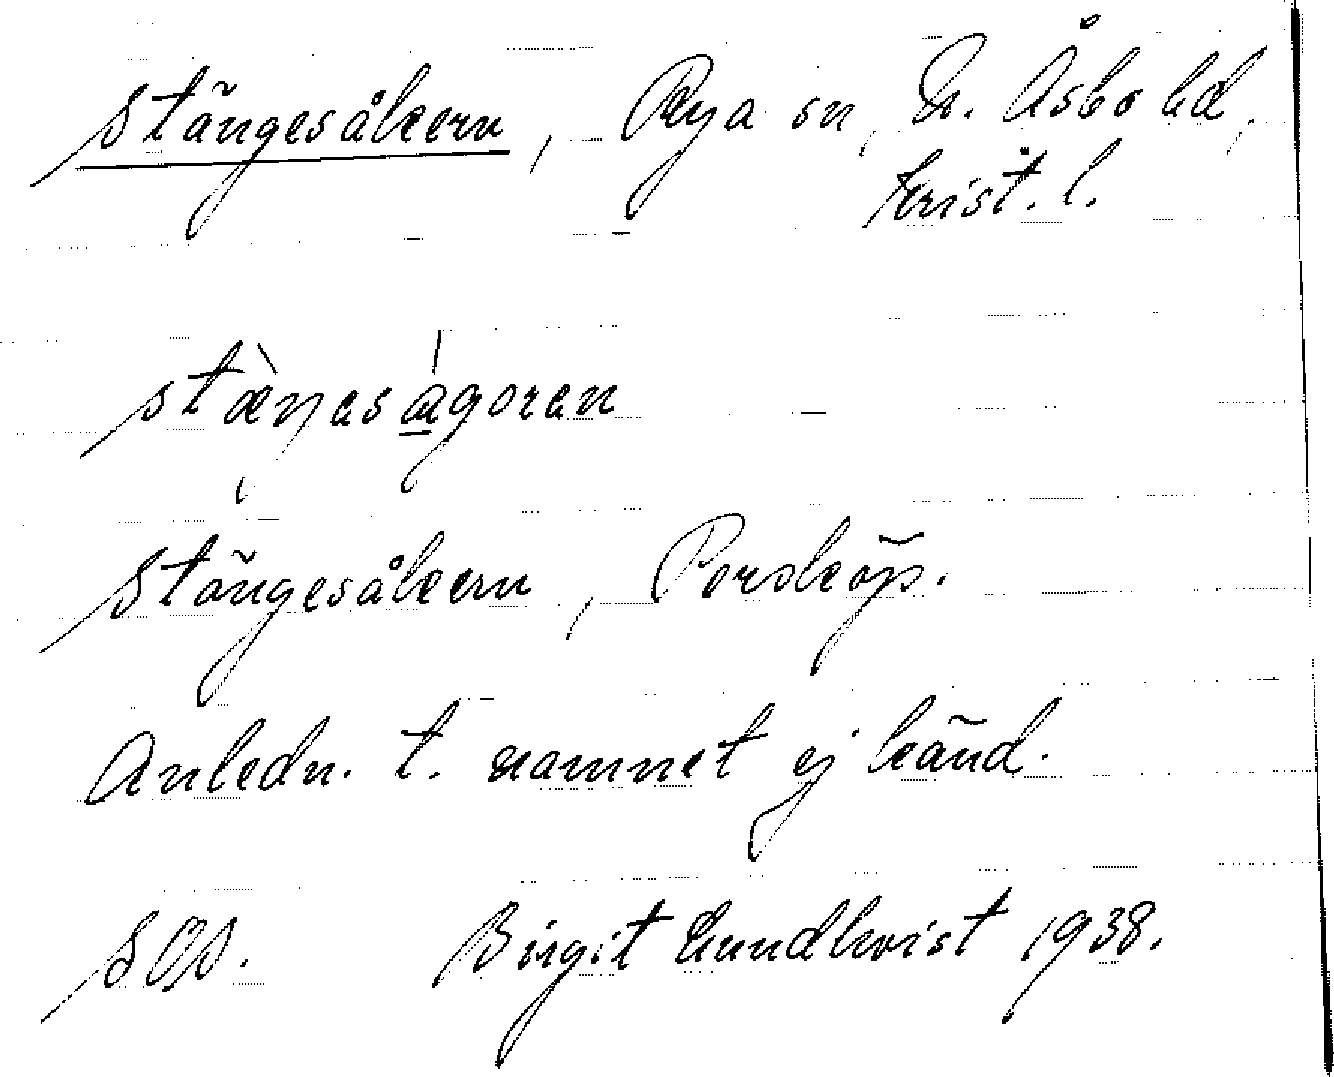 Stängesåkern, Rya sn, N. Åsbo hd,
Krist. l.
stæ̀ŋəsá̱goren
Stängesåkern, Porsköp.
Anledn. t. namnet ej känd.
SOD. Birgit Lundkvist 1938.